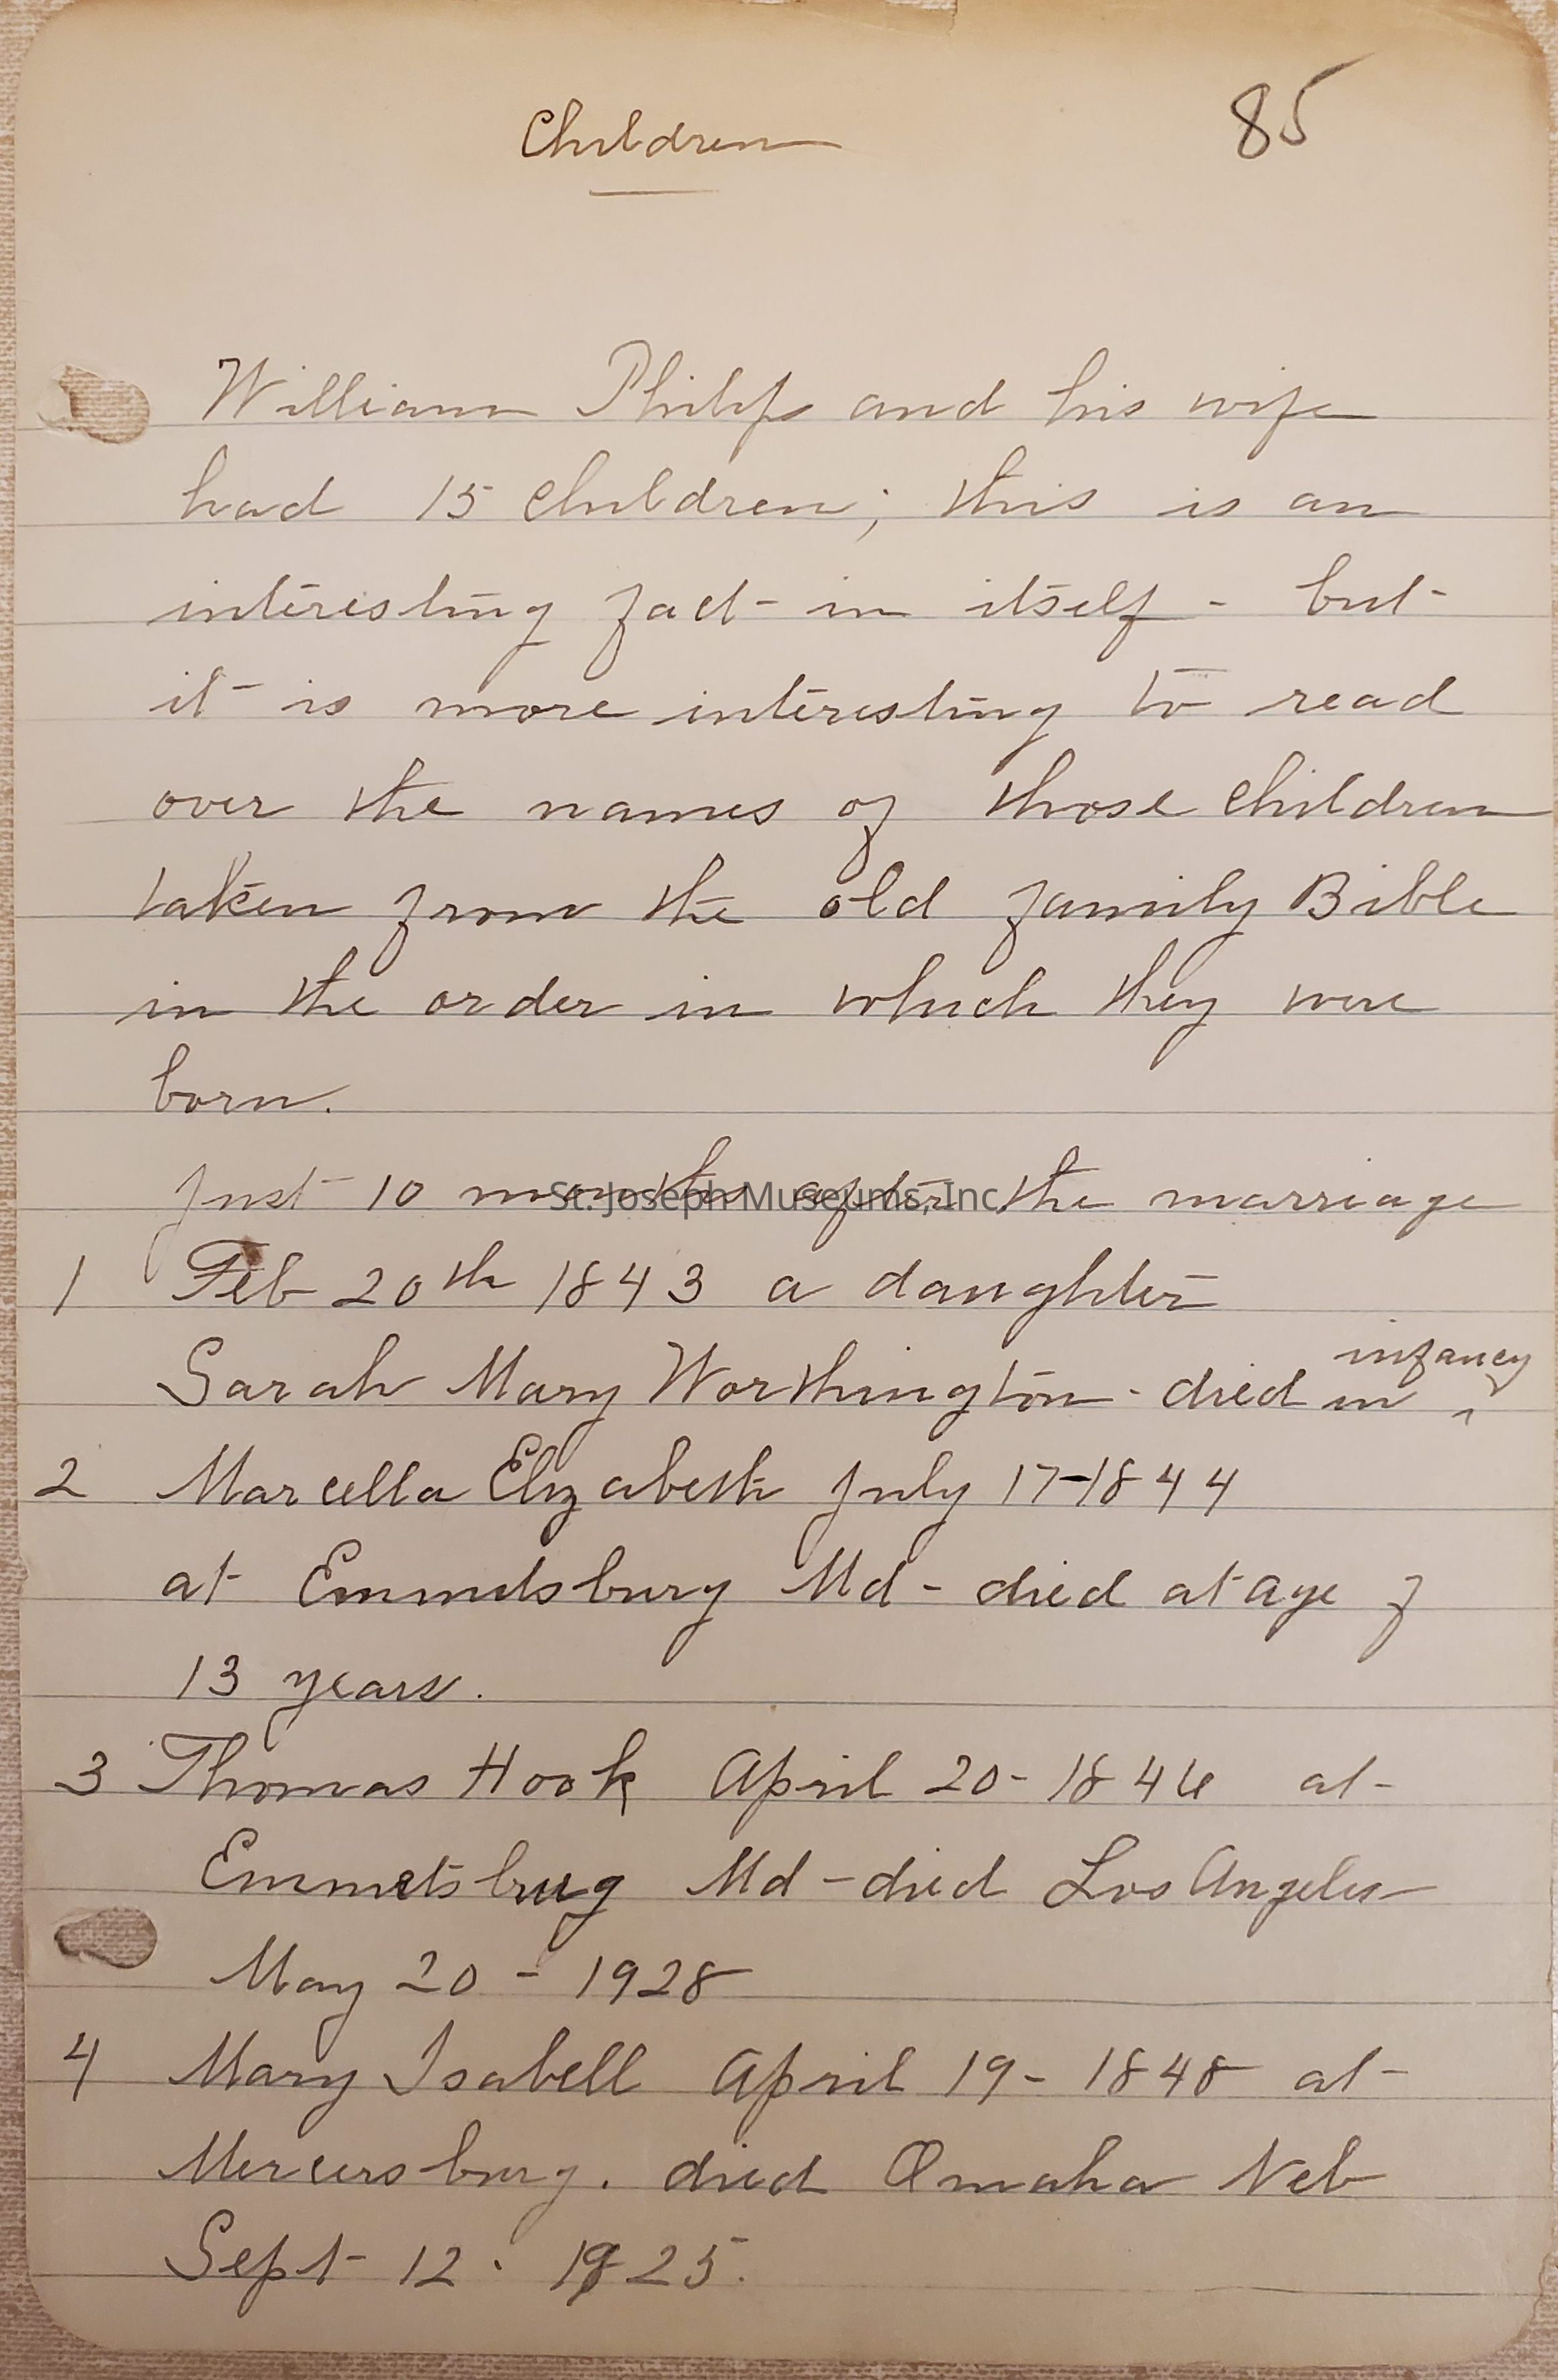 Children
85
William Philips and his wife
had 15 children; this is an
interesting fact in itself - but
it is more interesting to read
over the names of those children
taken from the old family Bible
in the order in which they were
born.
Just 10 months after the marriage
St. Joseph Museums, Inc.
1 Feb 20th 1843 a daughter
infancy
Sarah Mary Worthington - died in
2 Marcella Elizabeth July 17-1844
at Emmitsburg Md - died at age of
13 years.
3 Thomas Hook April 20-1846 at
Emmetsburg Md - died Los Angeles
May 20 - 1928
4 Mary Isabell April 19 - 1848 at
Mercersburg. died Omaha Neb
Sept 12. 1925.